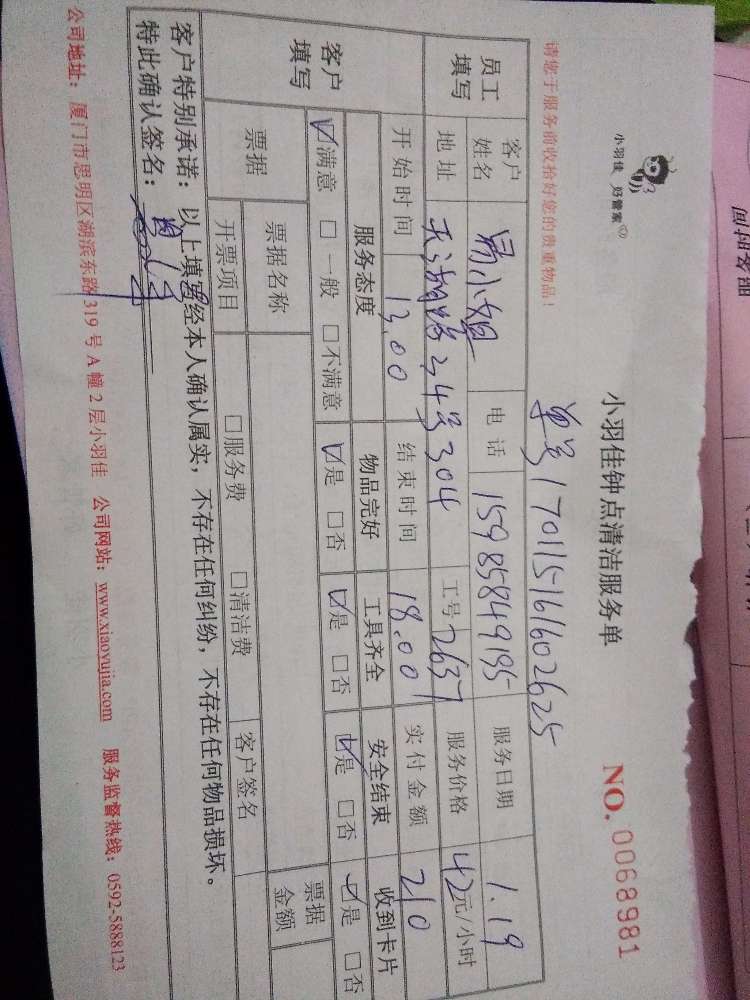 小羽佳 好管家
小羽佳钟点清洁服务单
NO. 0068981
请您于服务前收拾好您的贵重物品！
单号170115161602625
员工填写
客户姓名 易小姐 电话 15985849195 服务日期 1.19
地址 天湖路34号304 工号 2637 服务价格 42元/小时
开始时间 13.00 结束时间 18.00 实付金额 210
客户填写
服务态度 物品完好 工具齐全 安全结束 收到卡片
☑满意 □一般 □不满意 ☑是 □否 ☑是 □否 ☑是 □否 ☑是 □否
票据 票据名称 票据金额
开票项目 □服务费 □清洁费 客户签名
客户特别承诺：以上填写经本人确认属实，不存在任何纠纷，不存在任何物品损坏。
特此确认签名：
公司地址：厦门市思明区湖滨东路319号A幢2层小羽佳 公司网站：www.xiaoyujia.com 服务监督热线：0592-5888123